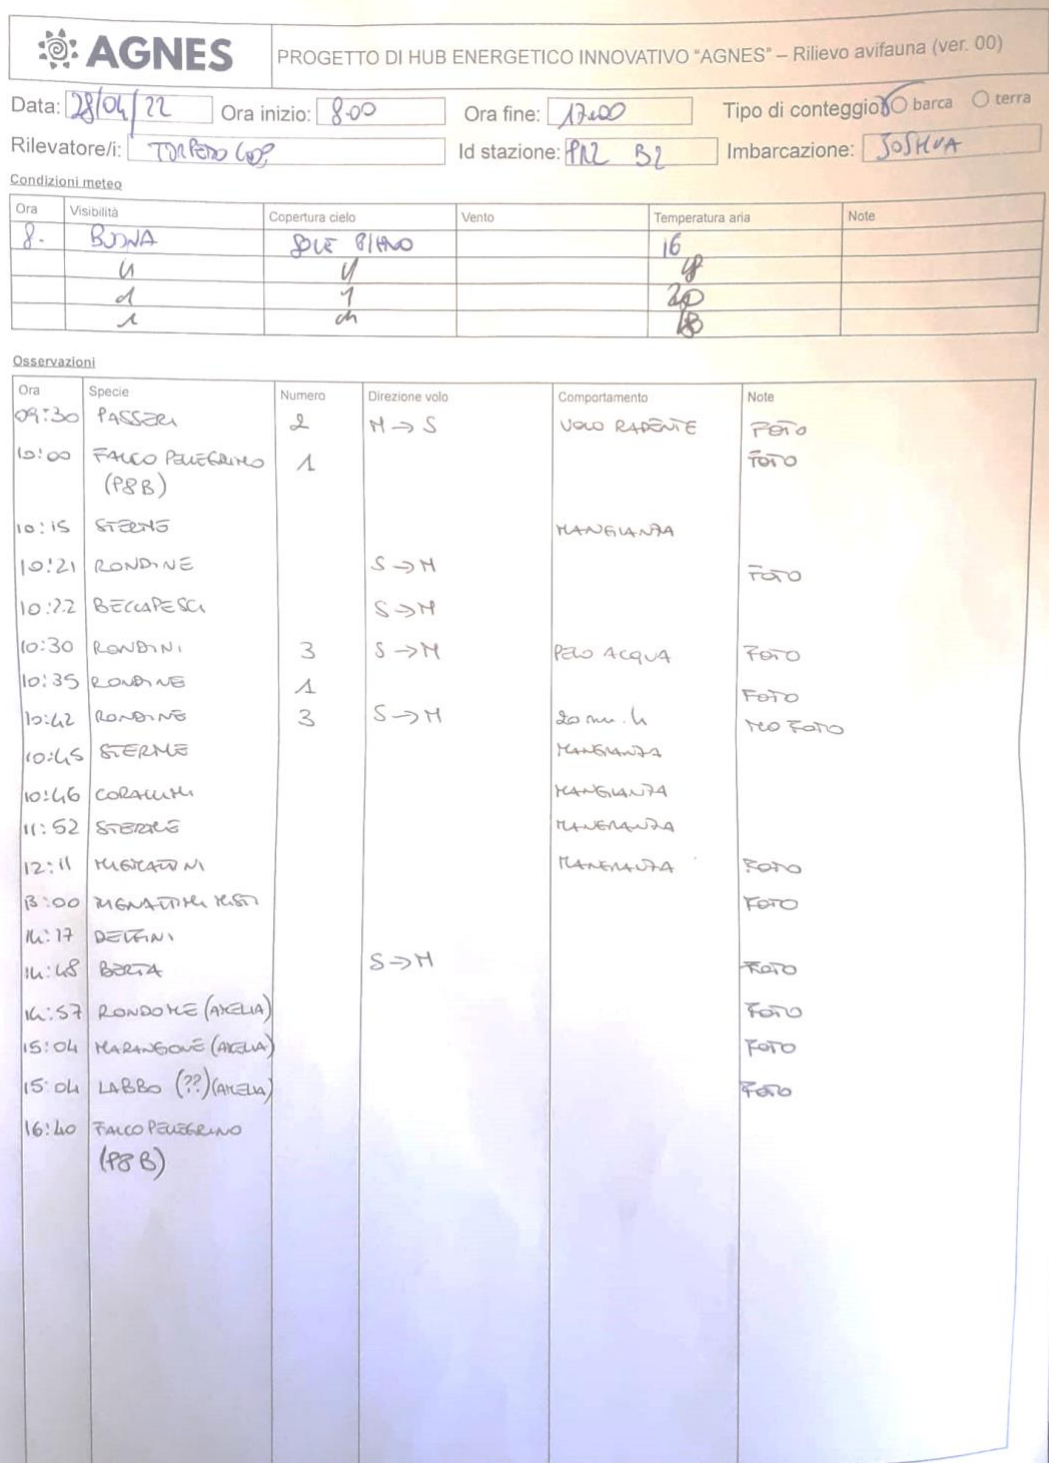 AGNES PROGETTO DI HUB ENERGETICO INNOVATIVO "AGNES" – Rilievo avifauna (ver. 00)
Data: 28/04/22 Ora inizio: 8.00 Ora fine: 17.00 Tipo di conteggio barca terra
Rilevatore/i: TORPEDO Id stazione: B2 Imbarcazione: JOSHUA
Condizioni meteo
Ora Visibilità Copertura cielo Vento Temperatura aria Note
8. BUONA SOLE PIENO 16
20
18
Osservazioni
Ora Specie Numero Direzione volo Comportamento Note
09:30 PASSERI 2 N → S VOLO RADENTE FOTO
10:00 FALCO PELLEGRINO 1 FOTO
(P8B)
10:15 STERNE MANGIANZA
10:21 RONDINE S → N FOTO
10:22 BECCAPESCI S → N
10:30 RONDINI 3 S → N PELO ACQUA FOTO
10:35 RONDINE 1 FOTO
10:42 RONDINE 3 S → N NO FOTO
10:45 STERNE MANGIANZA
10:46 CORALLINI MANGIANZA
11:52 STERNE MANGIANZA
12:11 MIGNATTINI MANGIANZA FOTO
13:00 MIGNATTINI MISTI FOTO
14:17 DELFINI
14:48 BERTA S → N FOTO
14:57 RONDONE (AMELIA) FOTO
15:04 MARANGONE (AMELIA) FOTO
15:04 LABBO (??) (AMELIA) FOTO
16:40 FALCO PELLEGRINO
(P8B)